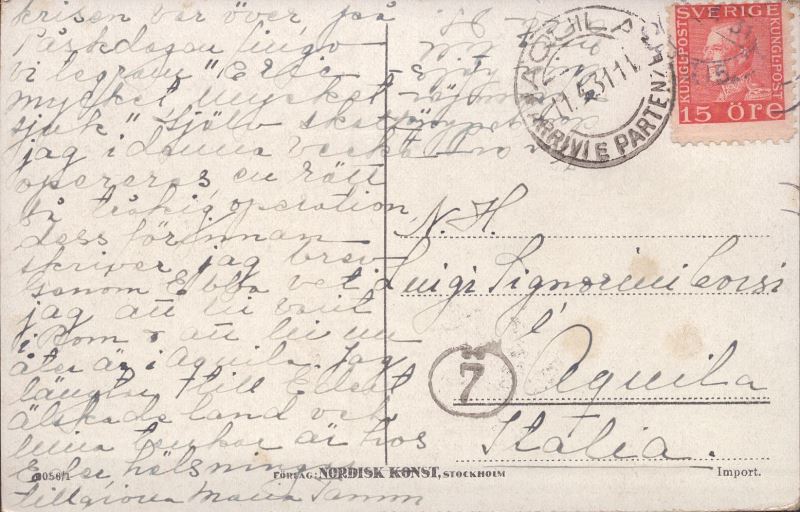 krisen var över på
Påskdagen
vi telegram "Elsie
mycket mycket
sjuk" Själv skall
jag i denna vecka
opereras, en rätt
så tråkig operation
dess förinnan
skriver jag brev.
Genom Ebba vet
jag att ni varit
i Rom o att ni nu
åter är i Aquila. Jag
längtar till Edert
älskade land och
mina tankar är hos
Eder hälsning
tillgivna Maria Tamm
AQUILA
11.4.31.11
ARRIVI E PARTENZ
SVERIGE
KUNGL·POST
KUNGL·POST
15 ÖRE
N. H.
Luigi Signorini Corsi
Aquila
Italia.
7
3056/1
FÖRLAG: NORDISK KONST, STOCKHOLM
Import.